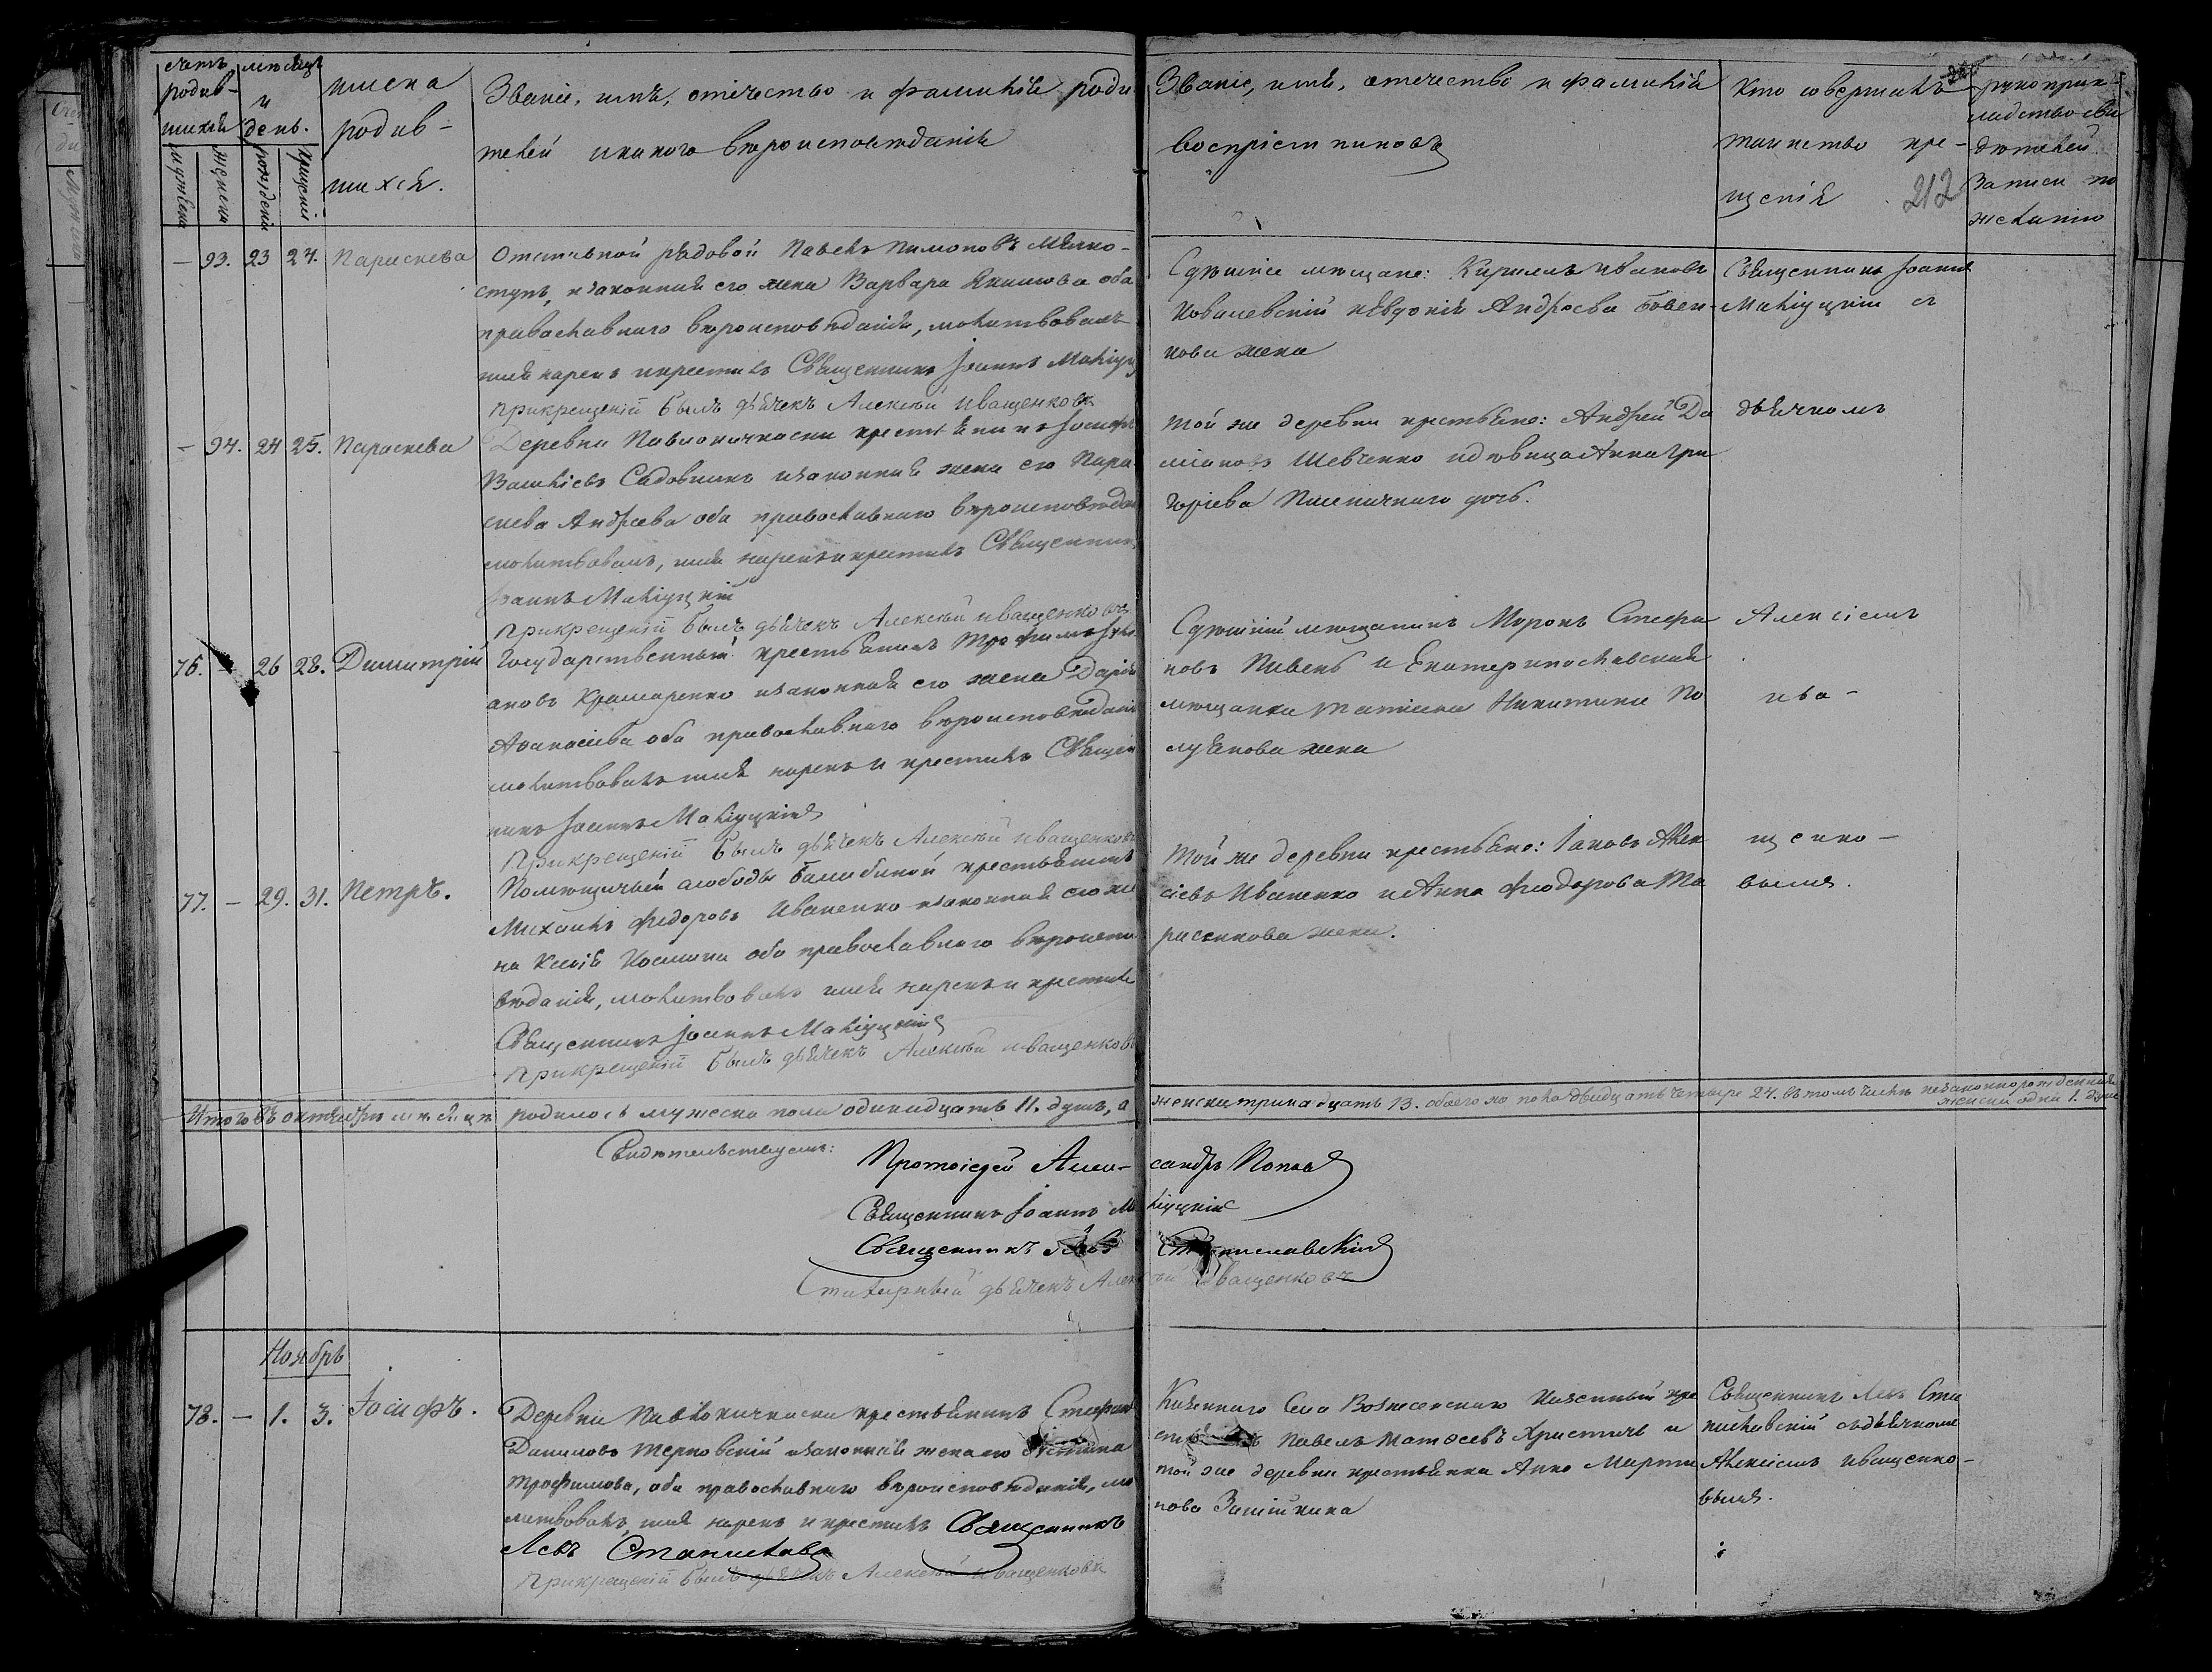 счетъ родив-шихся
мѣсяцъ и день.
имена родив-шихся.
Званіе, имя, отечество и фамилія роди
телей и какого вѣроисповѣданія
Званіе, имя, отечество и фамилія
воспріемниковъ
Кто совершалъ
таинство кре-
щенія
212
рукопри-
кладство сви
дѣтелей
записи по
желанію
мужеска
женска
рожденія
крещенія
— 93. 23 24. Параскева
Отставной рядовой Павелъ Пимоновъ
и законная его жена Варвара Якимова оба
православнаго вѣроисповѣданія, молитвовалъ
имя нарекъ и крестилъ Священникъ Іоаннъ
При крещеніи былъ дьячекъ Алексѣй Иващенковъ
Здѣшніе мѣщане: Кириллъ Ивановъ
Ковалевскій и Евдокія Андреева
жена
Священникъ Іоаннъ
съ
— 94. 24 25. Параскева
Деревни крестьянинъ Іосифъ
Садовникъ и законная жена его Пара
скева Андреева оба православнаго вѣроисповѣдан
молитвовалъ, имя нарекъ и крестилъ Священникъ
Іоаннъ
При крещеніи былъ дьячекъ Алексѣй Иващенковъ
Той же деревни крестьяне: Андрей Да
міановъ Шевченко и дѣвица Анна Гри
горіева Пшеничнаго дочь.
дьячкомъ
76. — 26 28. Димитрій
Государственный крестьянинъ Трофимъ
ановъ Крамаренко и законная его жена Дарія
Аѳанасіева оба православнаго вѣроисповѣданія
молитвовалъ имя нарекъ и крестилъ Священ
никъ Іоаннъ
При крещеніи былъ дьячекъ Алексѣй Иващенковъ
Здѣшній мѣщанинъ Миронъ Стефа
новъ Пивень и Екатеринославская
мѣщанка Татіана Никитина По
луянова жена
Алексіемъ
Ива-
77. — 29. 31. Петръ.
Помѣщичьей слободы крестьянинъ
Михаилъ Федоровъ Иваненко и законная его же
на Ксенія Космина оба православнаго вѣроиспо
вѣданія, молитвовалъ имя нарекъ и крестилъ
Священникъ Іоаннъ
При крещеніи былъ дьячекъ Алексѣй Иващенковъ
Той же деревни крестьяне: Іаковъ Алек
сіевъ Иваненко и Анна Феодорова Та
расенкова жена.
щенко-
вымъ.
Итого въ октябрѣ мѣсяцѣ родилось мужеска пола одинадцать 11. душъ, а женска тринадцать 13. обоего же пола двадцать четыре 24. въ томъ числѣ незаконнорожденная
женска одна 1. душа
Свидѣтельствуемъ: Протоіерей Алек-сандръ Поповъ
Священникъ Іоаннъ
Священникъ Левъ Станиславскій
Стихарный дьячекъ Алексѣй Иващенковъ
Ноябрь
78. — 1. 3. Іосифъ.
Деревни крестьянинъ Стефанъ
Даниловъ Терновскій и законная жена его
Трофимова, оба православнаго вѣроисповѣданія, мо
литвовалъ, имя нарекъ и крестилъ Священникъ
Левъ Станиславскій
При крещеніи былъ дьячекъ Алексѣй Иващенковъ
Казеннаго села Вознесенскаго казенный кре
Павелъ Матѳеевъ Христичъ и
той же деревни крестьянка Анна Марти
нова
Священникъ Левъ Ста
ниславскій съ дьячкомъ
Алексіемъ Иващенко-
вымъ.